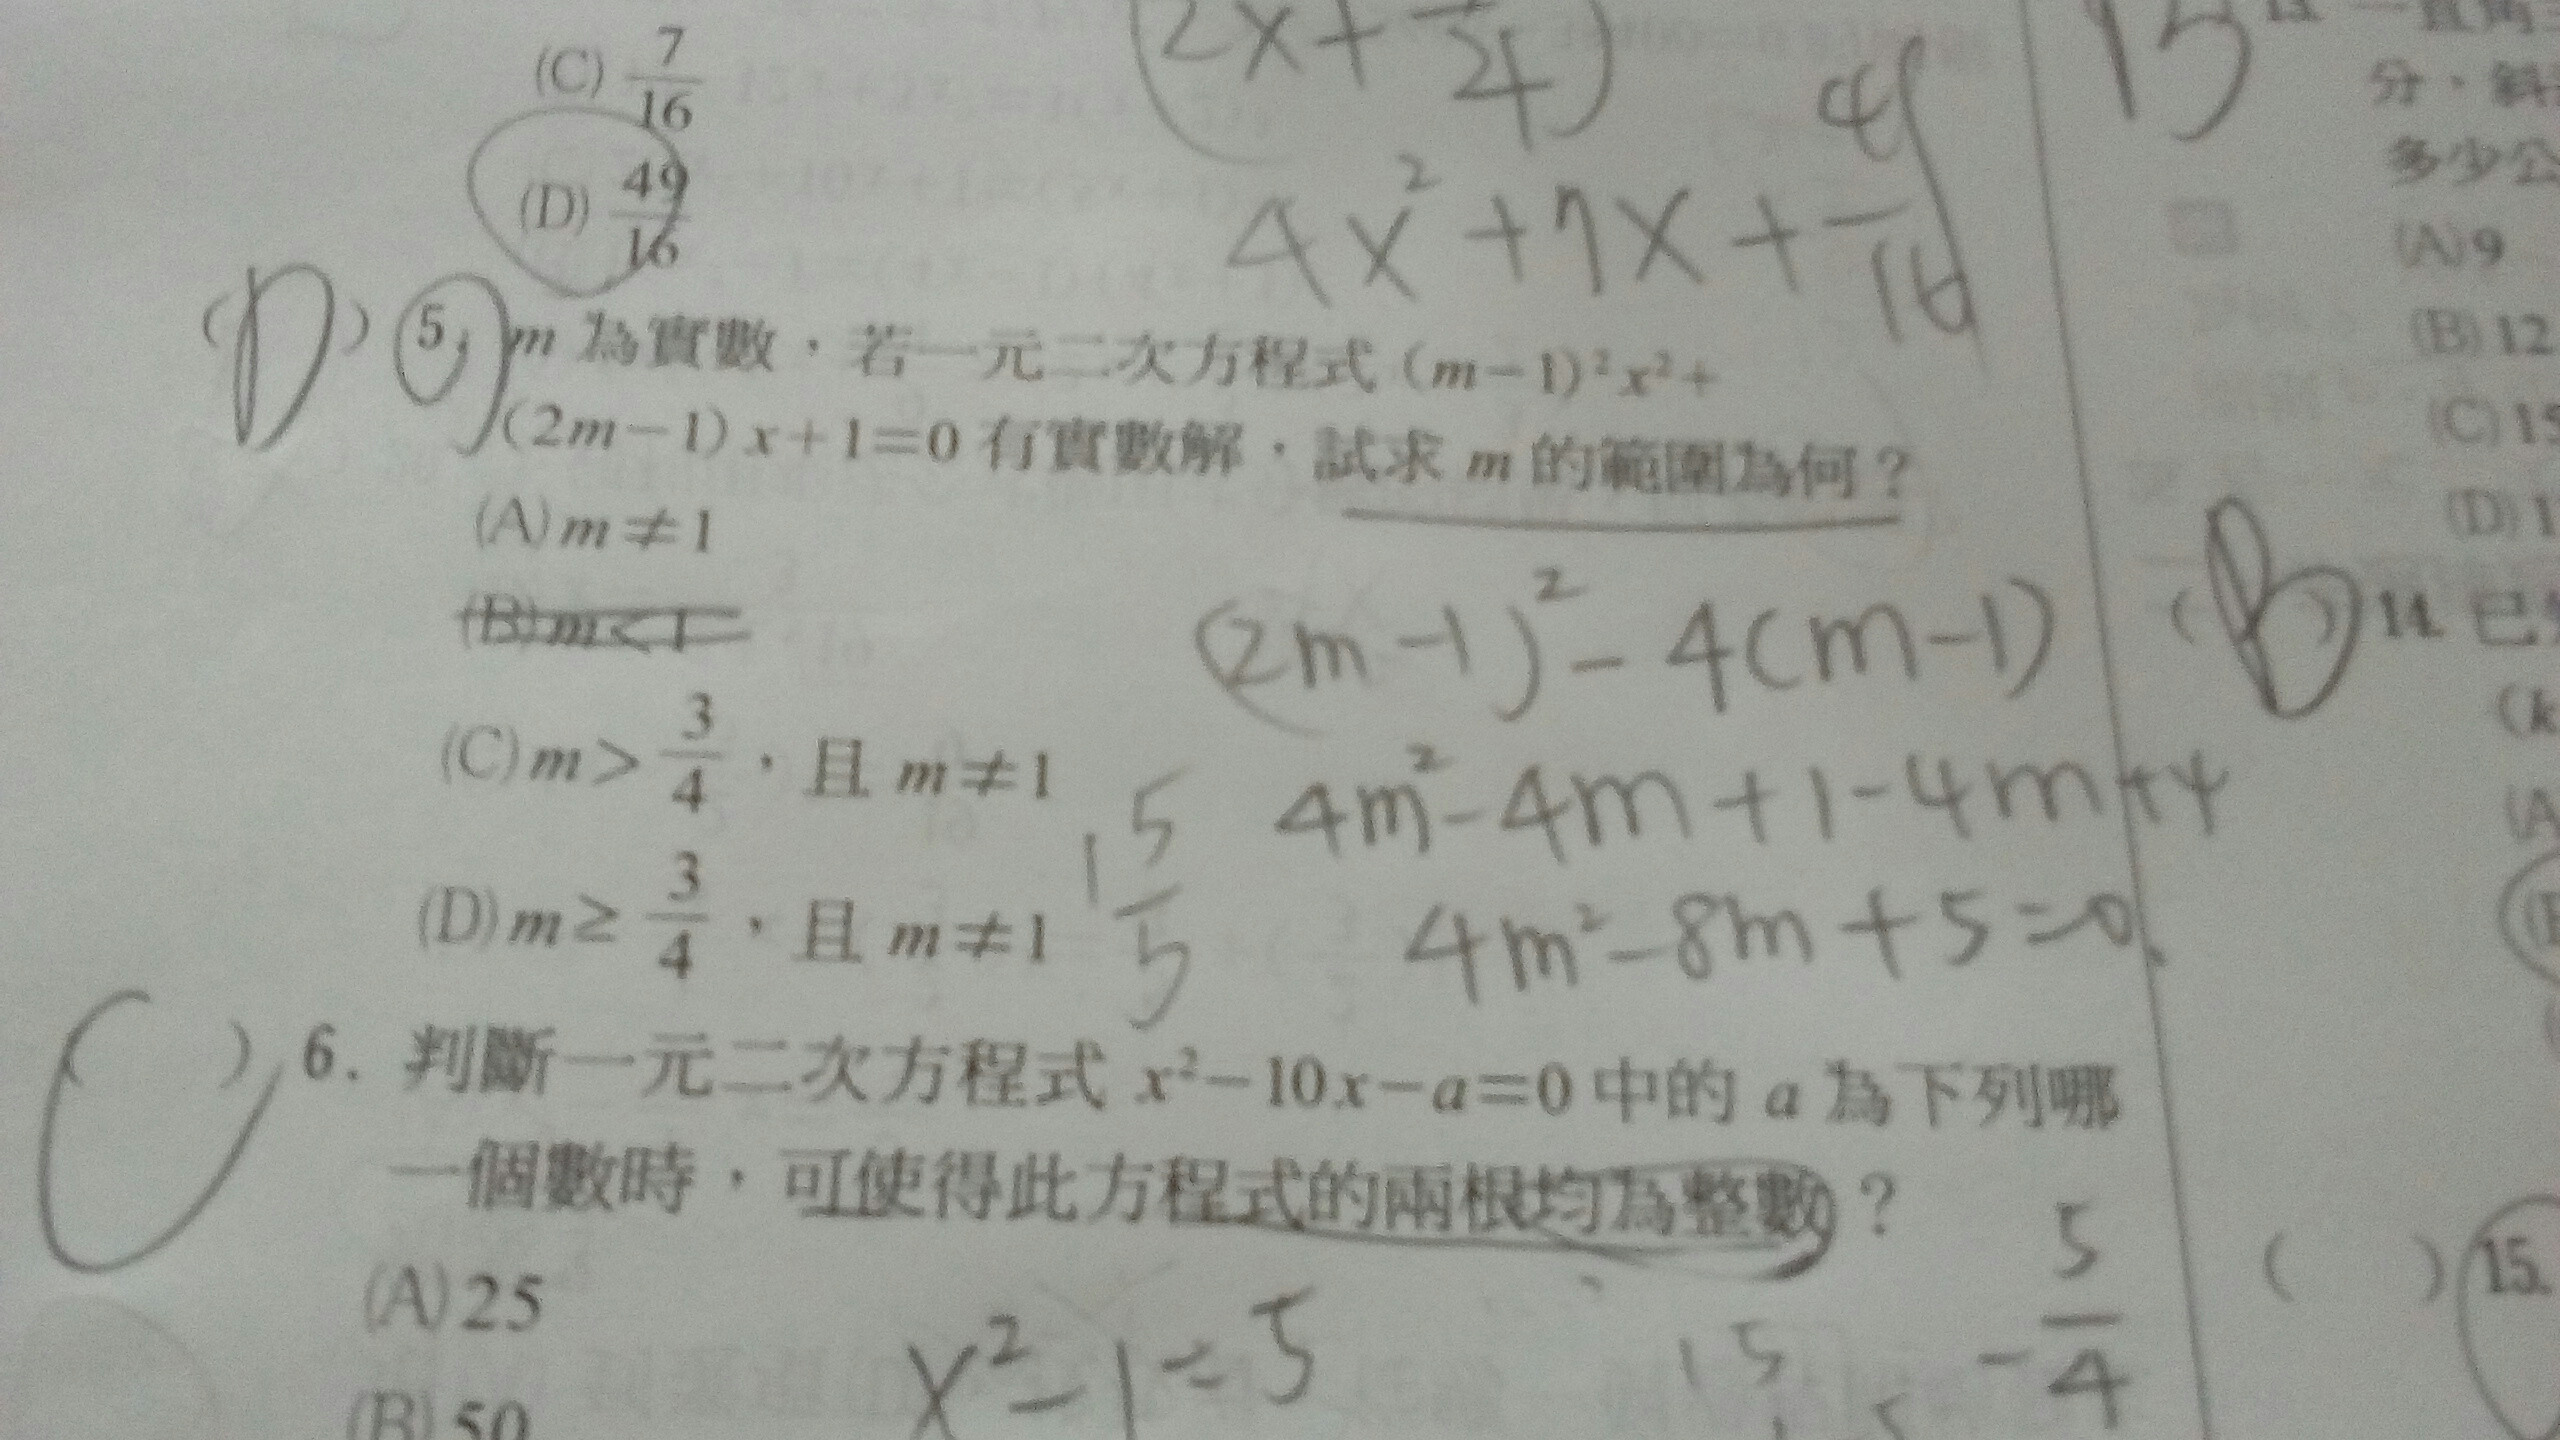 (C) 7/16
(D) 49/16
(2x+ /4)
4x²+7x+ /16
(D) 5. m 為實數，若一元二次方程式 (m－1)²x²＋
(2m－1)x＋1＝0 有實數解，試求 m 的範圍為何？
(A) m≠1
(B) m＜1
(C) m＞3/4，且 m≠1
(D) m≥3/4，且 m≠1
(2m-1)²-4(m-1)
4m²-4m+1-4m+4
4m²-8m+5=0
1 5
5
( ) 6. 判斷一元二次方程式 x²－10x－a＝0 中的 a 為下列哪
一個數時，可使得此方程式的兩根均為整數？
(A) 25
(B) 50
x²-1=5
15
-5/4
一直角
分，斜
多少公
(A) 9
(B) 12
(C) 15
(D) 1
(B) 14. 已
(k
(A
( ) 15.